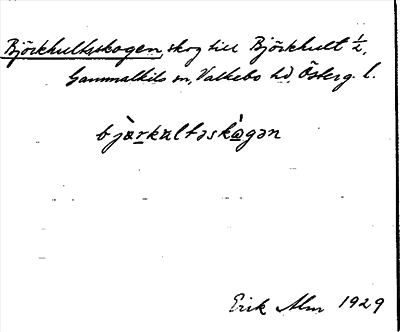 Björkhultsskogen, skog till Björkhult ½,
Gammalkils sn, Valkebo hd, Österg. l.
bjà̱rkəltəskò̱gən
Erik Alm 1929